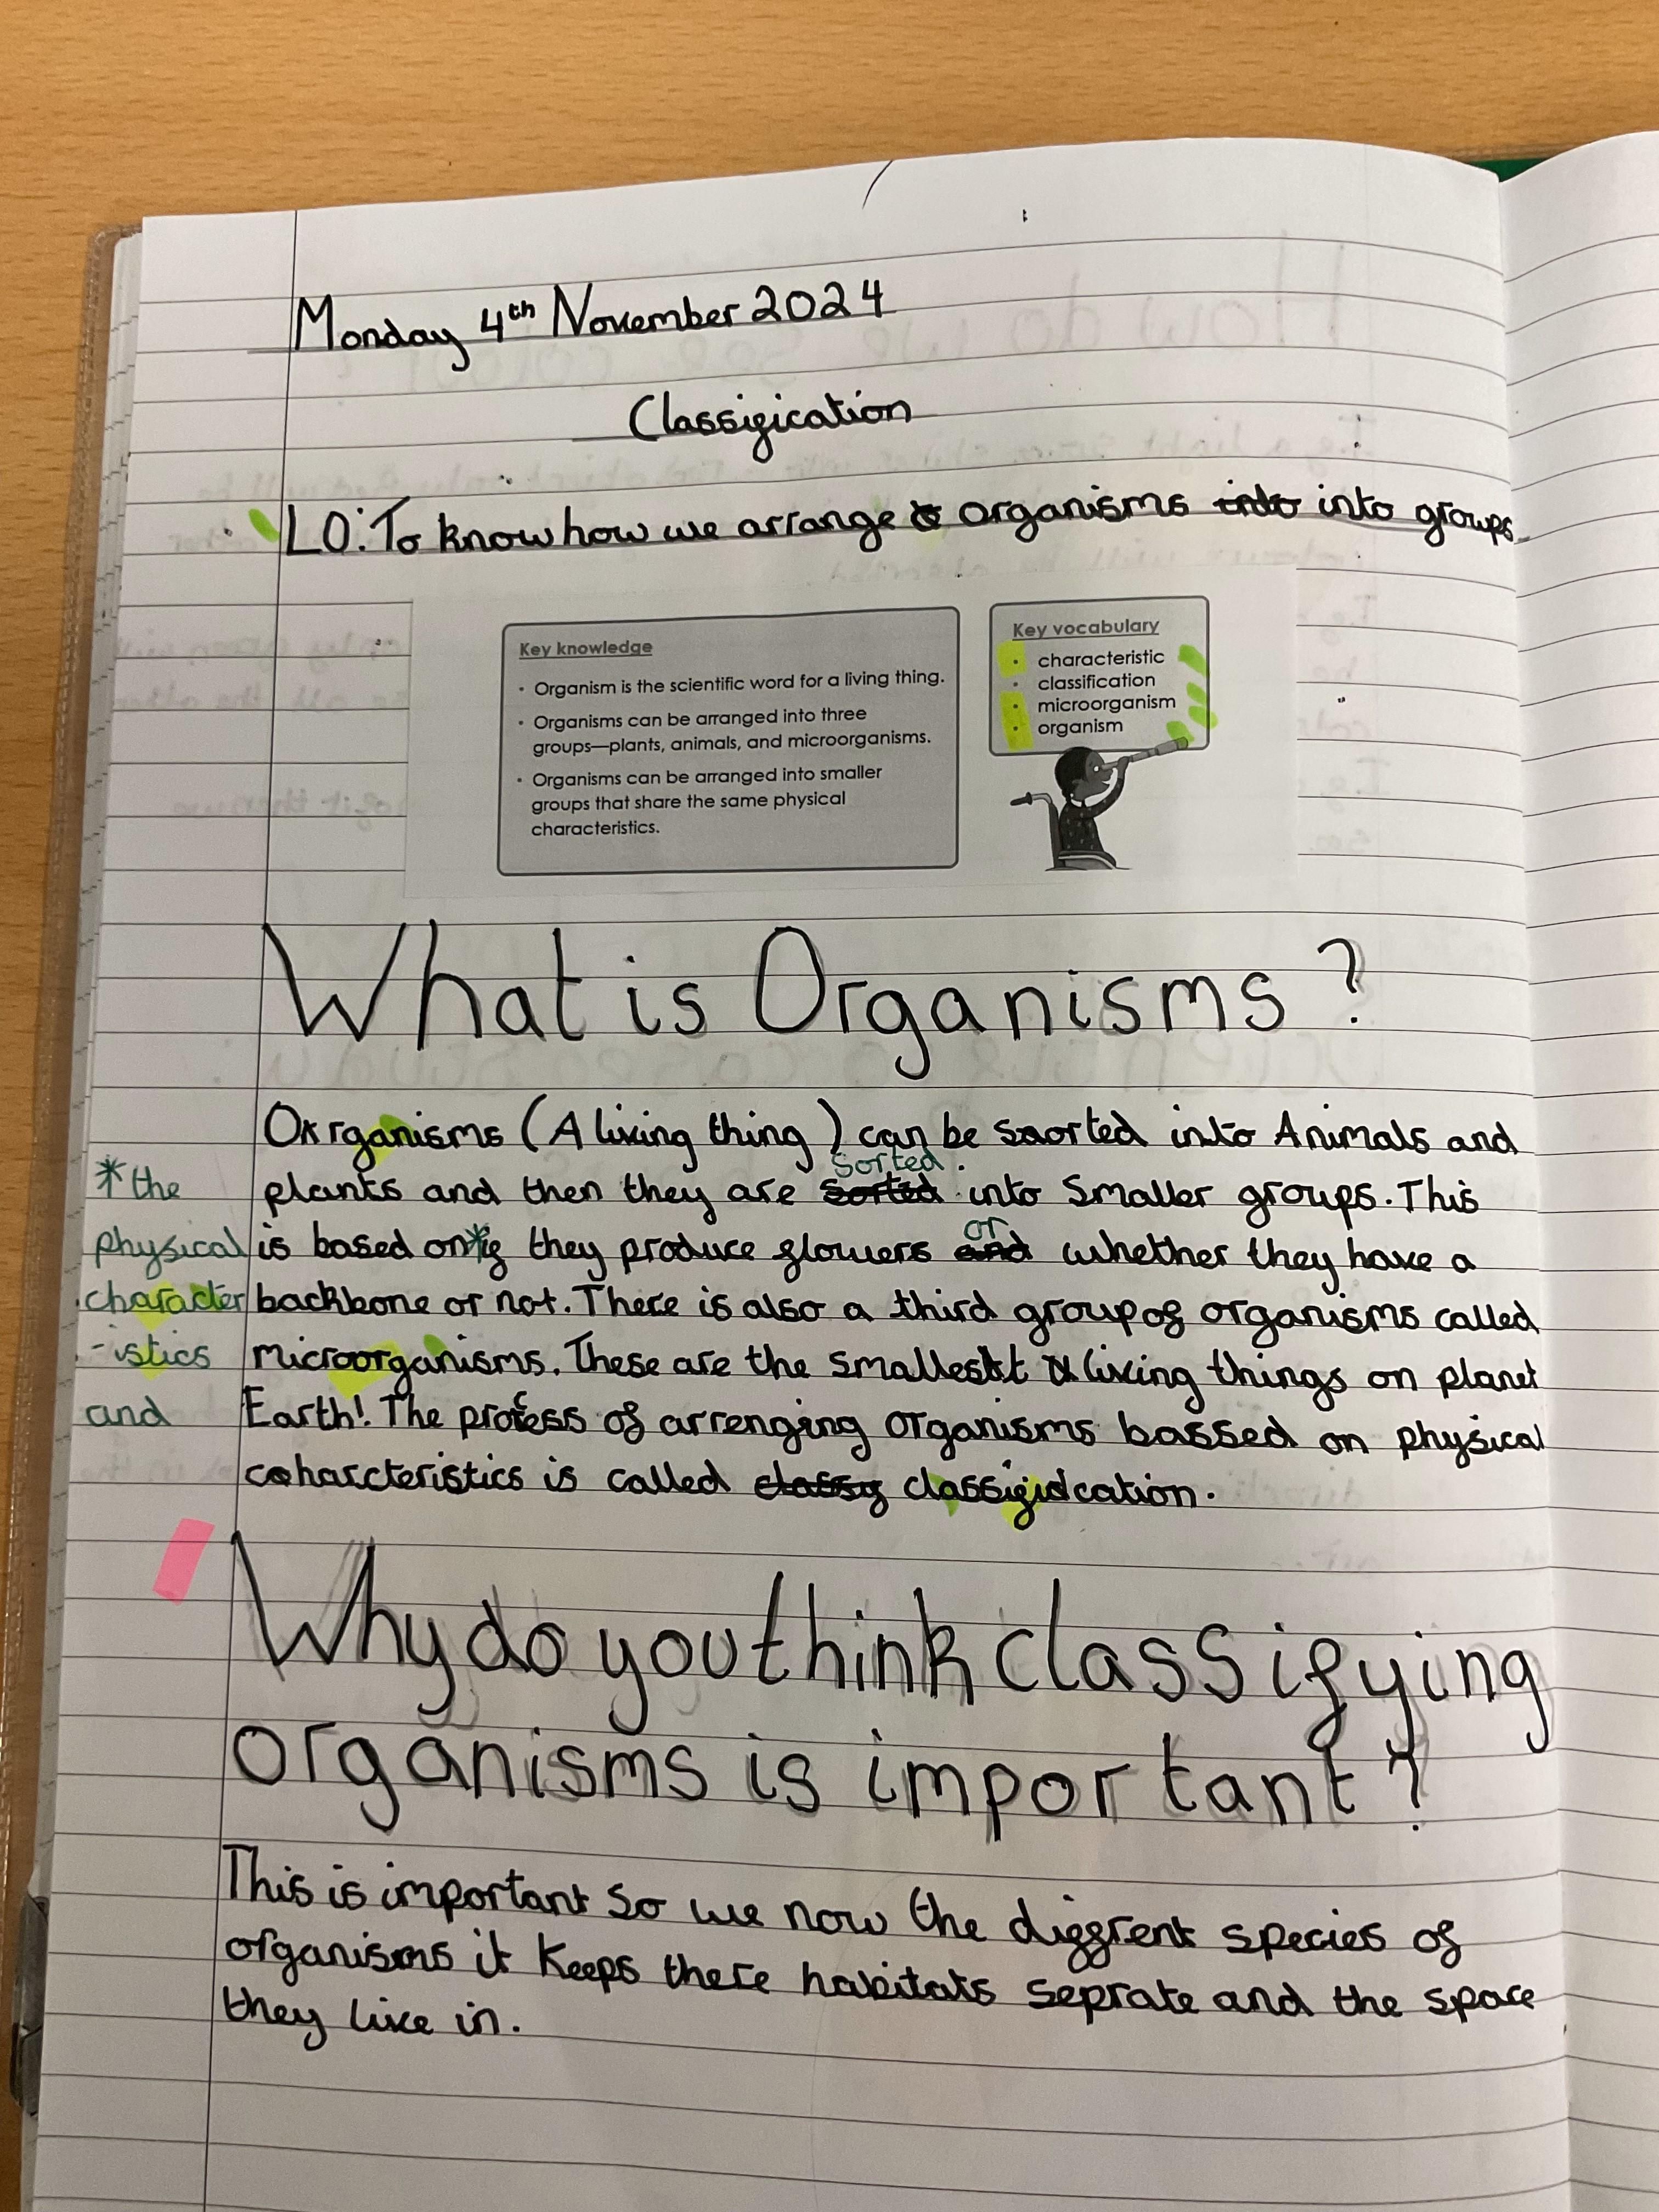 Monday 4th November 2024
Classification
LO: To know how we arrange organisms into into groups
Key knowledge
• Organism is the scientific word for a living thing.
• Organisms can be arranged into three
groups—plants, animals, and microorganisms.
• Organisms can be arranged into smaller
groups that share the same physical
characteristics.
Key vocabulary
• characteristic
• classification
• microorganism
• organism
What is Organisms?
Organisms (A living thing) can be sorted into Animals and
sorted
plants and then they are sorted into smaller groups. This
or
is based on * if they produce flowers and whether they have a
backbone or not. There is also a third group of organisms called
microorganisms. These are the smallest living things on planet
Earth! The process of arrenging organisms bassed on physical
coharcteristics is called classify classification.
* the
physical
character
-istics
and
Why do you think classifying
organisms is important?
This is important so we now the diffrent species of
organisms it keeps there habitats seprate and the space
they live in.